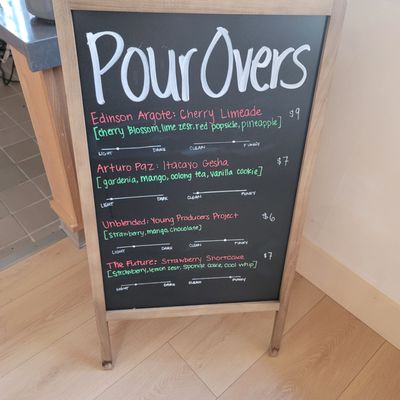 Pour Overs
Edinson Argote: Cherry Limeade $9
[cherry blossom, lime zest, red popsicle, pineapple]
LIGHT DARK CLEAN FUNKY
Arturo Paz: Itacayo Gesha $7
[gardenia, mango, oolong tea, vanilla cookie]
LIGHT DARK CLEAN FUNKY
Unblended: Young Producers Project $6
[strawberry, mango, chocolate]
LIGHT DARK CLEAN FUNKY
The Future: Strawberry Shortcake $7
[strawberry, lemon zest, sponge cake, cool whip]
LIGHT DARK CLEAN FUNKY